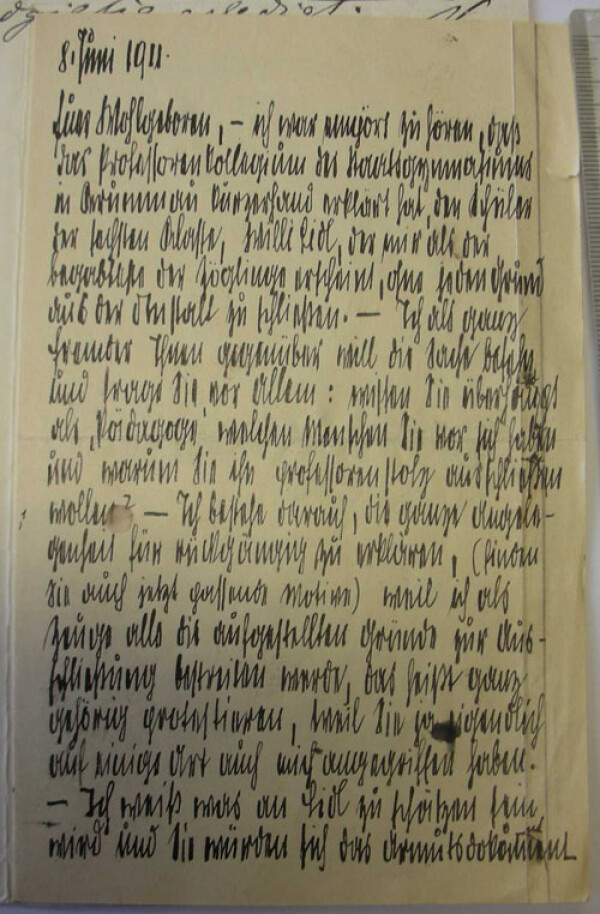 8. Juni 1911.
Euer Wohlgeboren, – ich war empört zu hören, daß
das Professorenkollegium des Staatsgymnasiums
in Krummau kurzerhand erklärt hat, den Schüler
der sechsten Klasse, Willi Lidl, der mir als der
begabteste der Zöglinge erscheint, ohne jeden Grund
aus der Anstalt zu schließen. – Ich als ganz
fremder Ihnen gegenüber will die Sache
und frage Sie vor Allem: wissen Sie überhaupt
als Pädagoge, welchen Menschen Sie vor sich haben
und warum Sie ihn professorenstolz ausschließen
wollen? – Ich bestehe darauf, die ganze Angele-
genheit für rückgängig zu erklären, (finden
Sie auch jetzt passende Motive) weil ich als
Zeuge alle die aufgestellten Gründe zur Aus-
schließung bestreiten werde, das heißt ganz
gehörig protestieren, weil Sie ja eigendlich
auf einige Art auch mich angegriffen haben.
– Ich weiß was an Lidl zu schätzen sein
wird und Sie würden sich das Armutsdokument